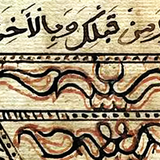 من قبلك وبالأخر